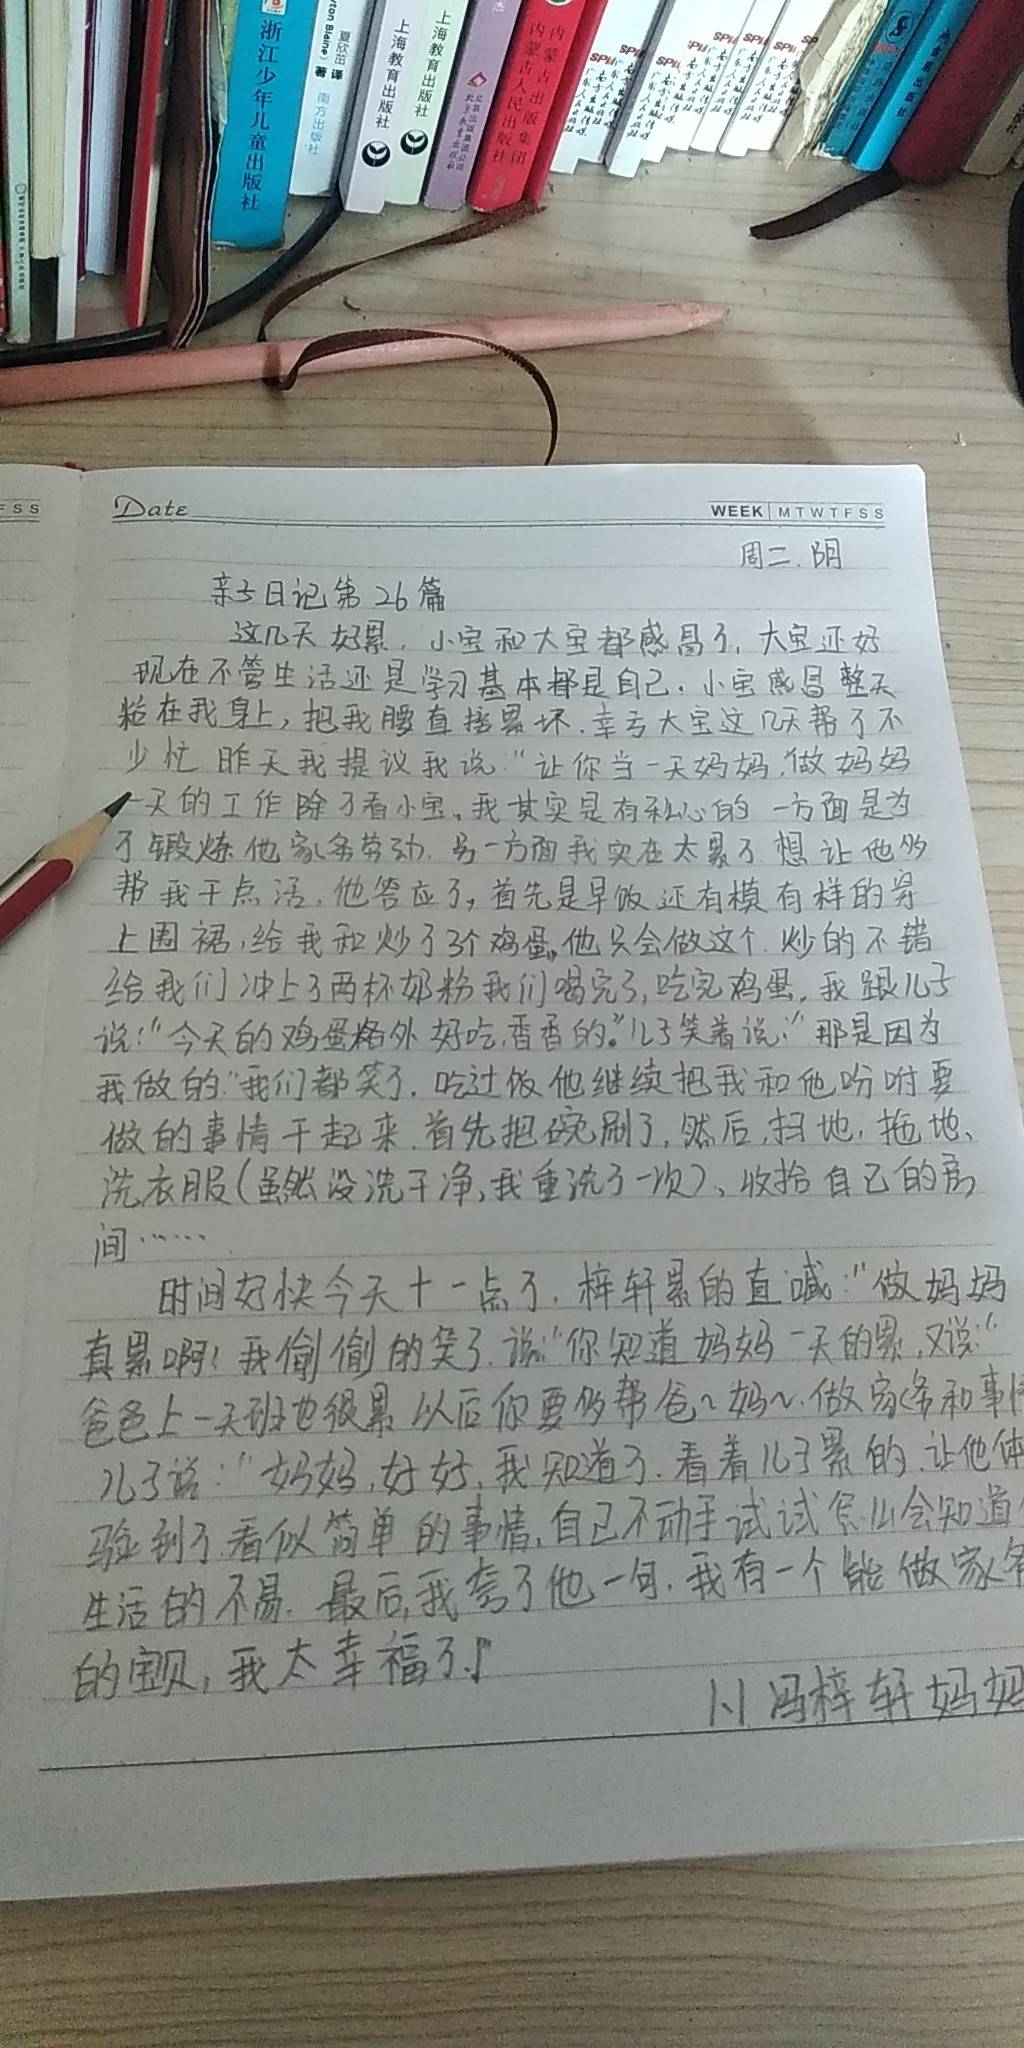 浙江少年儿童出版社
夏欣茁 译
著
南方出版社
上海教育出版社
上海教育出版社
内蒙古出版集团
内蒙古人民出版社
Date
WEEK M T W T F S S
F S S
周二.阴
亲子日记第26篇
这几天好累，小宝和大宝都感冒了，大宝还好
现在不管生活还是学习基本都是自己，小宝感冒整天
粘在我身上，把我腰直接累坏.幸亏大宝这几天帮了不
少忙 昨天我提议我说：“让你当一天妈妈,做妈妈
一天的工作除了看小宝。我其实是有私心的 一方面是为
了锻炼他家务劳动.另一方面我实在太累了 想让他多
帮我干点活，他答应了，首先是早饭还有模有样的穿
上围裙，给我和炒了3个鸡蛋，他只会做这个.炒的不错
给我们冲上了两杯奶粉我们喝完了，吃完鸡蛋，我跟儿子
说：“今天的鸡蛋格外好吃.香香的。”儿子笑着说：“那是因为
我做的.”我们都笑了.吃过饭他继续把我和他吩咐要
做的事情干起来.首先把碗刷了，然后，扫地，拖地、
洗衣服（虽然没洗干净,我重洗了一次）、收拾自己的房
间……
时间好快今天十一点了.梓轩累的直喊：“做妈妈
真累啊！我偷偷的笑了.说：“你知道妈妈一天的累，又说：“
爸爸上一天班也很累以后你要多帮爸~妈~.做家务和事情
儿子说：“妈妈,好好，我知道了.看着儿子累的.让他体
验到了.看似简单的事情,自己不动手试试怎么会知道
生活的不易.最后,我夸了他一句.我有一个能做家务
的宝贝，我太幸福了！
1.1 冯梓轩妈妈